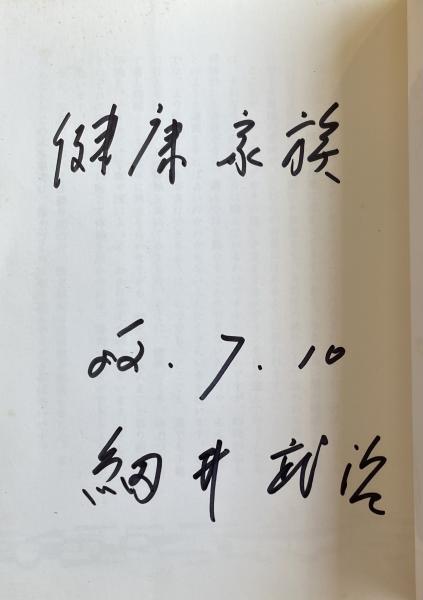 健康家族
62.7.10
細井武治